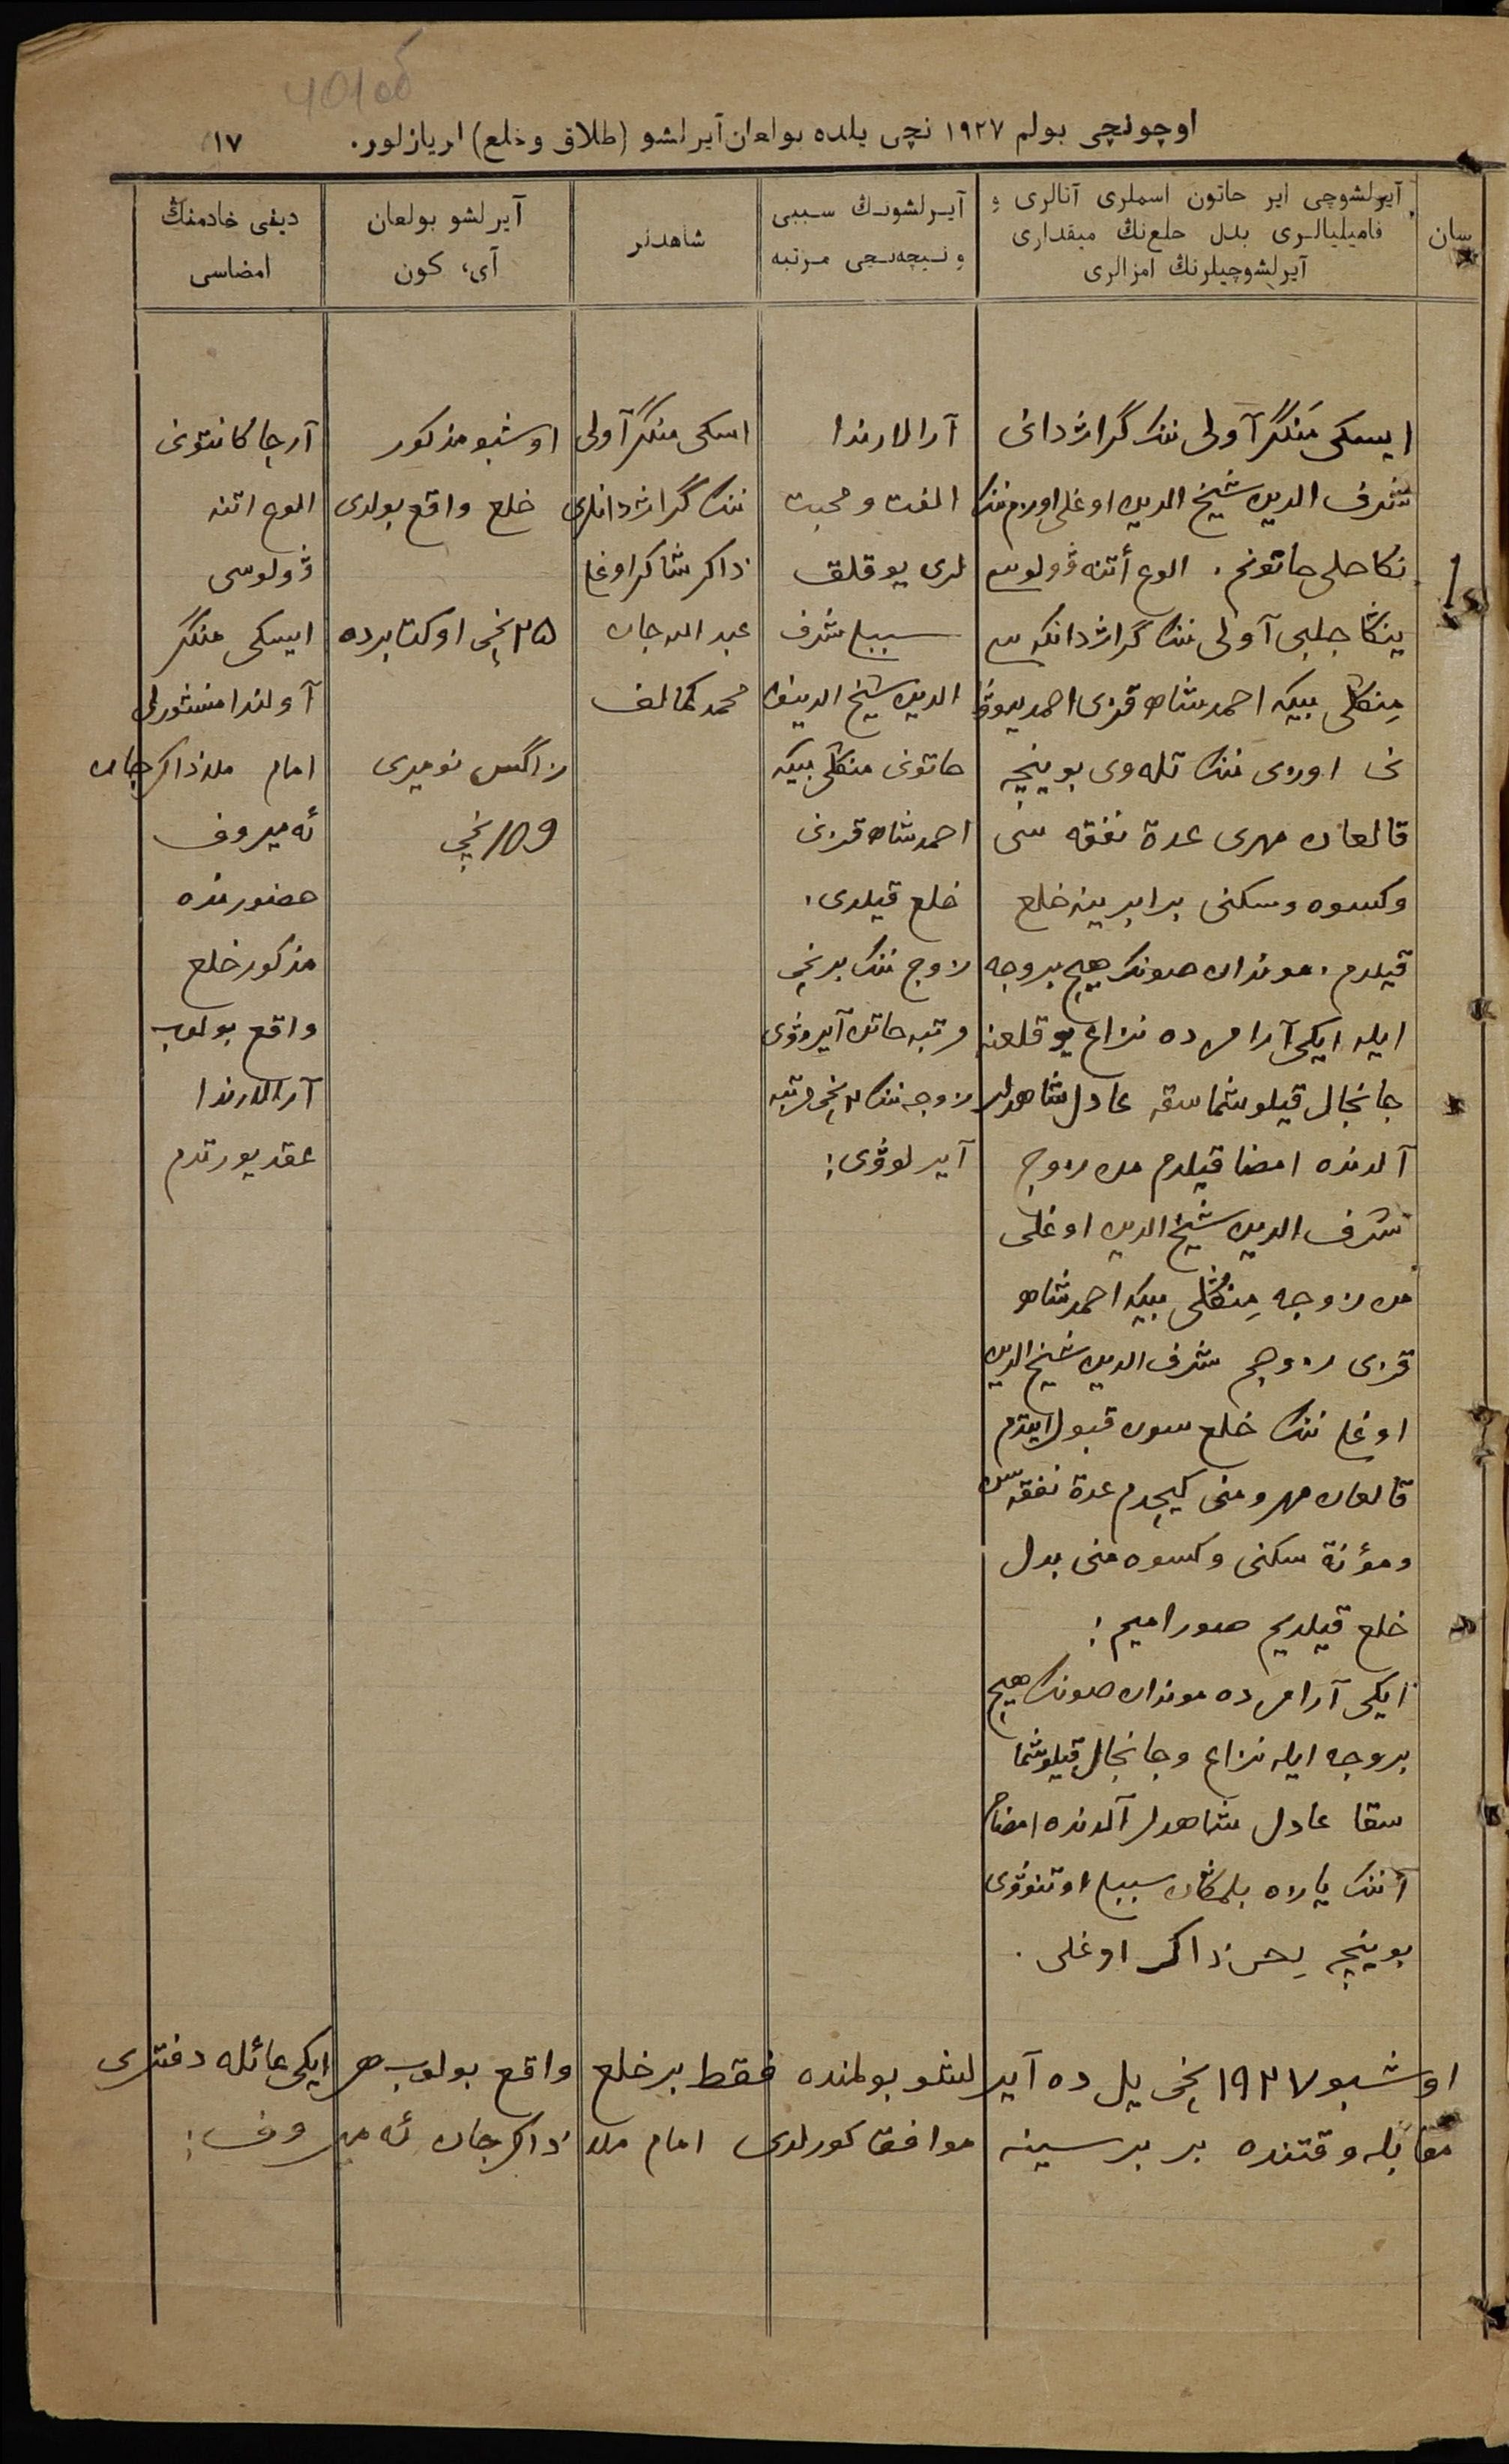 40 об
اوچونچی بولم ١٩٢٧ نچی یلده بولعان آیرلشو (طلاق و خلع) لریازلور.
١٧
سان
آیرلشوچی ایر حاتون اسملری آتالری و
فامیلیالری بدل خلع‌نڭ میقداری
آیرلشوچیلرنڭ امزالری
آیرلشونڭ سببی
و نیچه‌نچی مرتبه
شاهدلر
آیرلشو بولعان
آی، کون
دینی خادمنڭ
امضاسی
١
ایسکی منگر آولی ننک گراژدانی
شرف الدین شیخ الدین اوغلی اوزم ننک
نکاحلی حاتونم. الوع أتنه ۋولوسی
ینکا جلبی آولی ننک گراژدانکه سی
منکلی بیکه احمدشاه قزی احمدیروۋا
نی اوزی ننک تله وی بوینچه
قالعان مهری عدة نفقه سی
وکسوه وسکنی برابرینه خلع
قیلدم. موندان صونک هیچ بروجه
ایله ایکی آرامزده نزاع یوقلغنه
جانجال قیلوشماسقه عادل شاهدلر
آلدنده امضا قیلدم من زوج
شرف الدین شیخ الدین اوغلی
من زوجه منکلی بیکه احمدشاه
قزی زوجم شرف الدین شیخ الدین
اوغلی ننک خلع سون قبول ایتدم
قالعان مهرومنی کیچدم عدة نفقه سن
ومؤنة سکنی وکسوه منی بدل
خلع قیلدیم صورامیم:
ایکی آرامزده موندان صونک هیچ
بروجه ایله نزاع وجانجال قیلوشما
سقا عادل شاهدلر آلدنده امضام
آننک یازه بلمکان سببلی اوتنوۋی
بوینچه یحی ذاکر اوغلی.
آرالارندا
الفت و محبت
لری یوقلق
سببلی شرف
الدین شیخ الدینف
حاتونی منکلی بیکه
احمدشاه قزنی
خلع قیلدی.
زوج ننک برنچی
مرتبه حاتن آیروۋی
زوجه ننک ٢نچی مرتبه
آیرلوۋی:
اسکی منگر آولی
ننک گراژدانلری
ذاکر شاکر اوغلی
عبدالله جان
محمد کمالف
اوشبو مذکور
خلع واقع بولدی
٢٥نچی اوکتابرده
زاگس نومیری
١٥٩نچی
آرچا کانتونی
الوع اتنه
ۋولوسی
ایسکی منگر
آولندا منشورلی
امام ملا ذاکرجان
ئه میروف
حضورنده
مذکور خلع
واقع بولوب
آرالارندا
عقد یورتدم
اوشبو ١٩٢٧ نچی یل ده آیرلشو بولمنده فقط بر خلع واقع بولوب هر ایکی عائله دفتری
مقابله وقتنده بر برسینه موافق کورلدی امام ملا ذاکرجان ئه میروف: